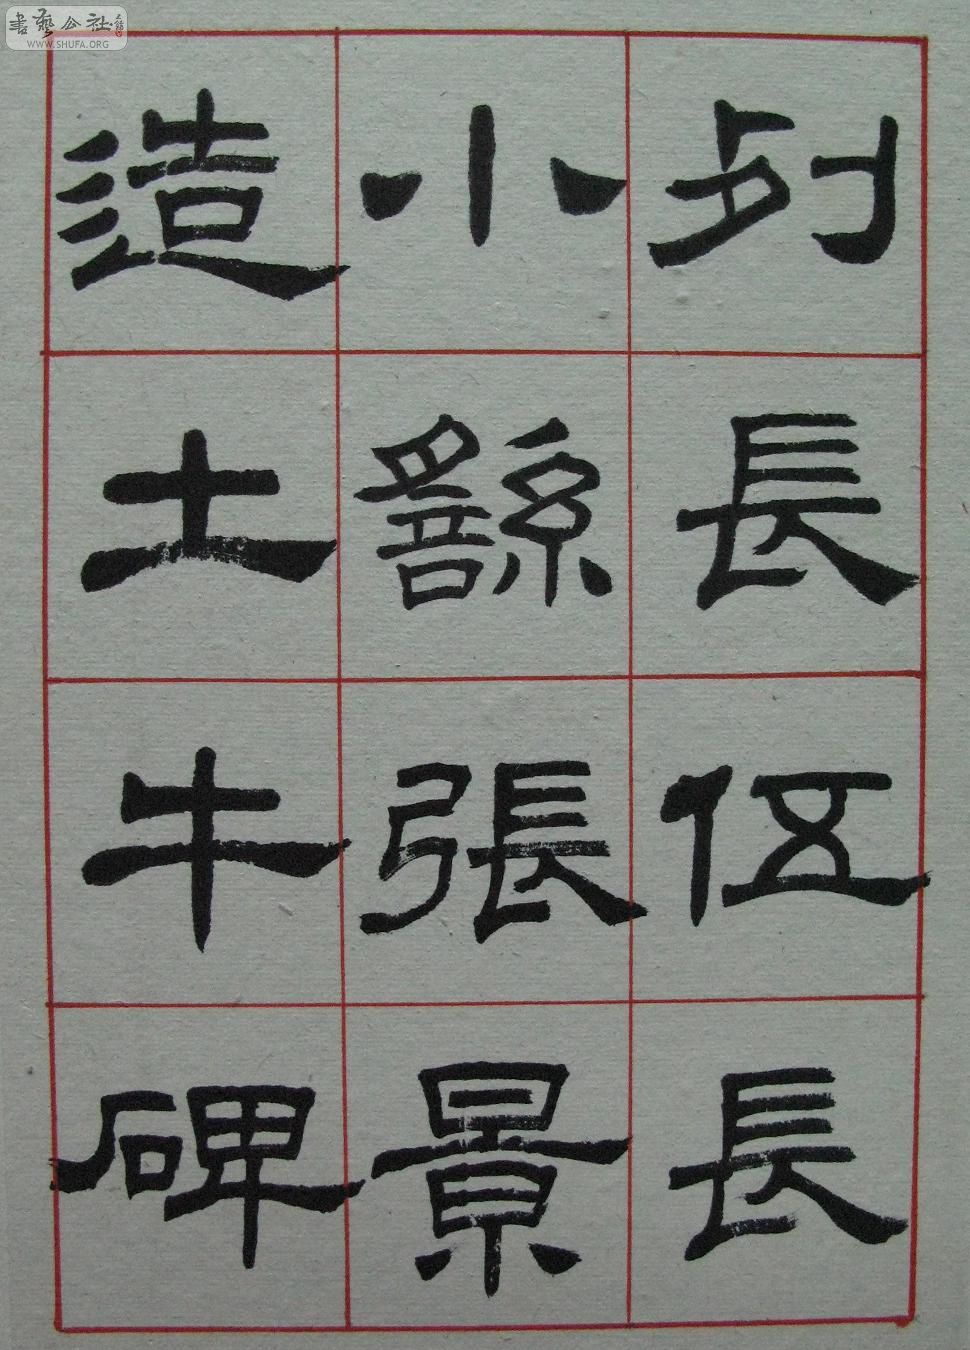 列長伍長
小繇張景
造土牛碑
書藝公社
WWW.SHUFA.ORG